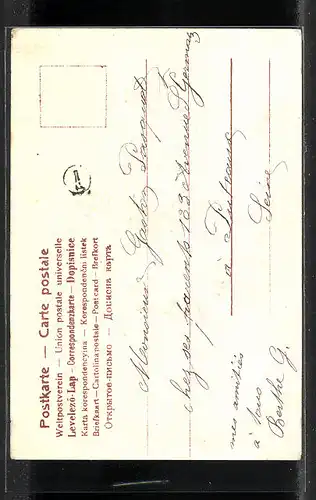 Postkarte — Carte postale
Weltpostverein — Union postale universelle
Levelező-Lap – Correspondenzkarte – Dopisnice
Karta korespondencyjna — Korespondenční listek
Briefkaart — Cartolina postale — Postcard — Brefkort
Открытое письмо — Дописна карта
Monsieur Gaston
chez ses parents 183 Avenue St Germain
à Puteaux
Seine
mes amitiés
à tous
Berthe G.